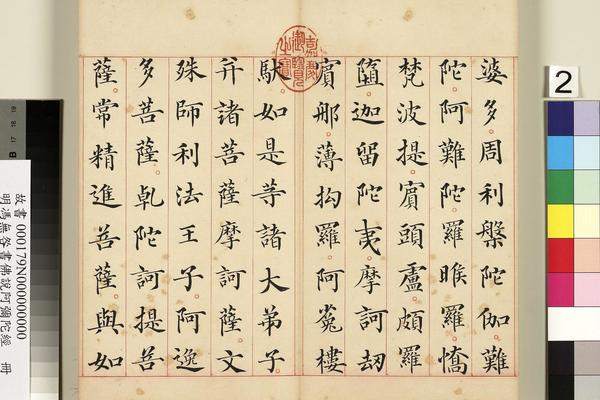 婆多。周利槃陀伽。難
陀。阿難陀。羅睺羅。憍
梵波提。賓頭盧。頗羅
墮。迦留陀夷。摩訶劫
賓那。薄拘羅。阿㝹樓
馱。如是等諸大弟子。
并諸菩薩摩訶薩。文
殊師利法王子。阿逸
多菩薩。乹陀訶提菩
薩。常精進菩薩。與如
嘉慶御覽之寶
2
故書 000179N000000000
明馮無咎書佛說阿彌陀經 冊